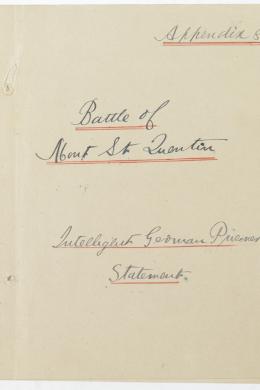 Appendix
Battle of
Mont St. Quentin
Intelligent German
Statement.